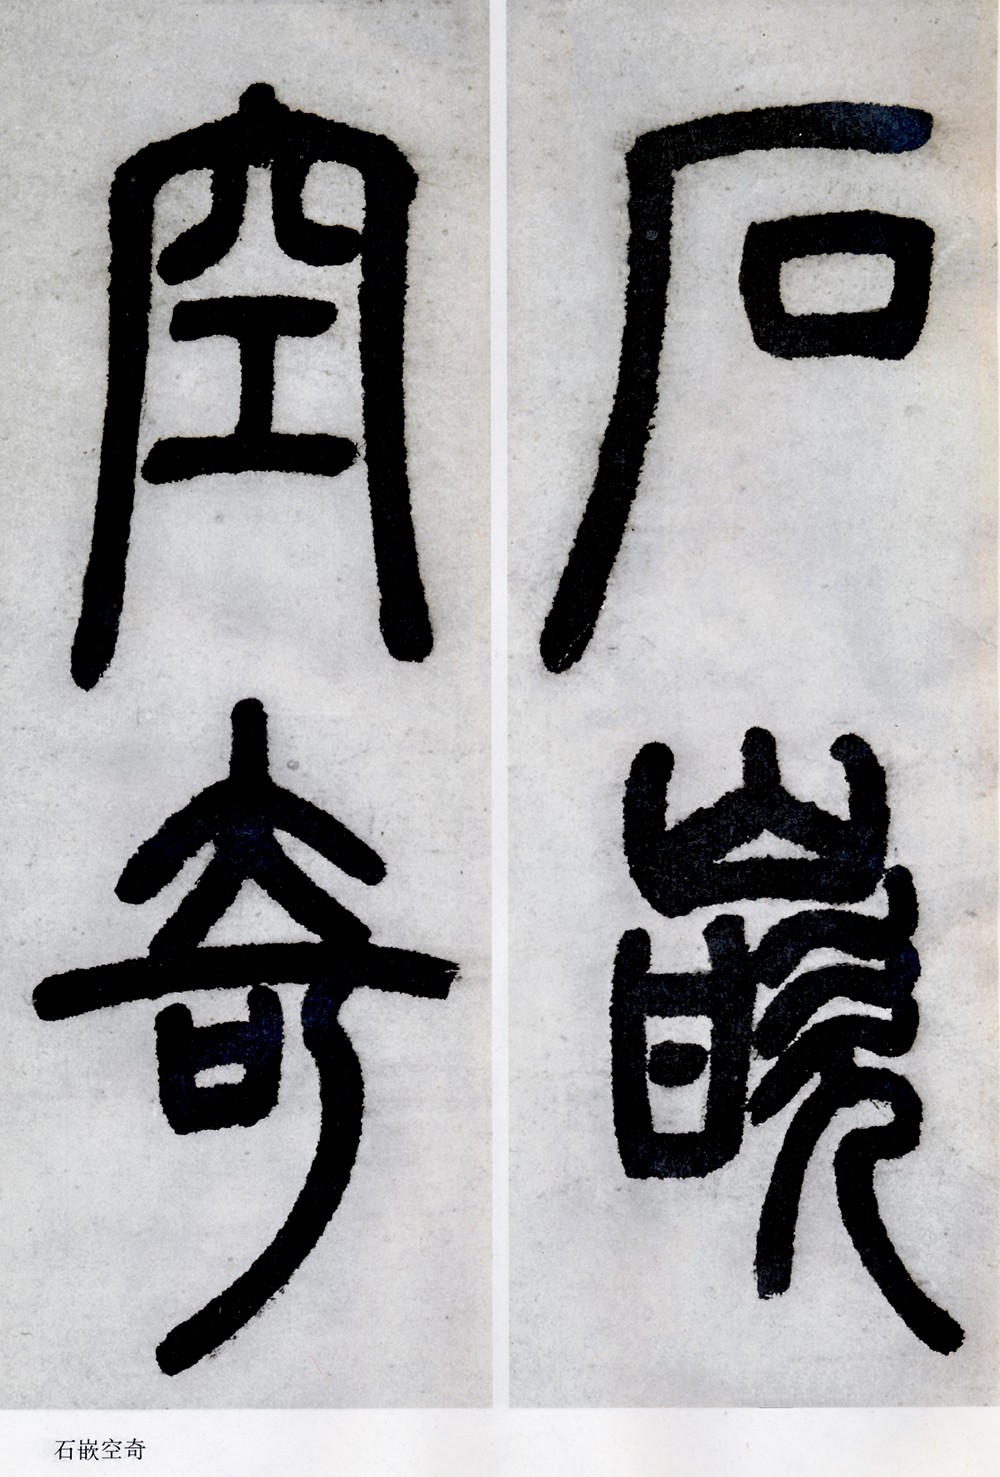 石嵌
空奇
石嵌空奇